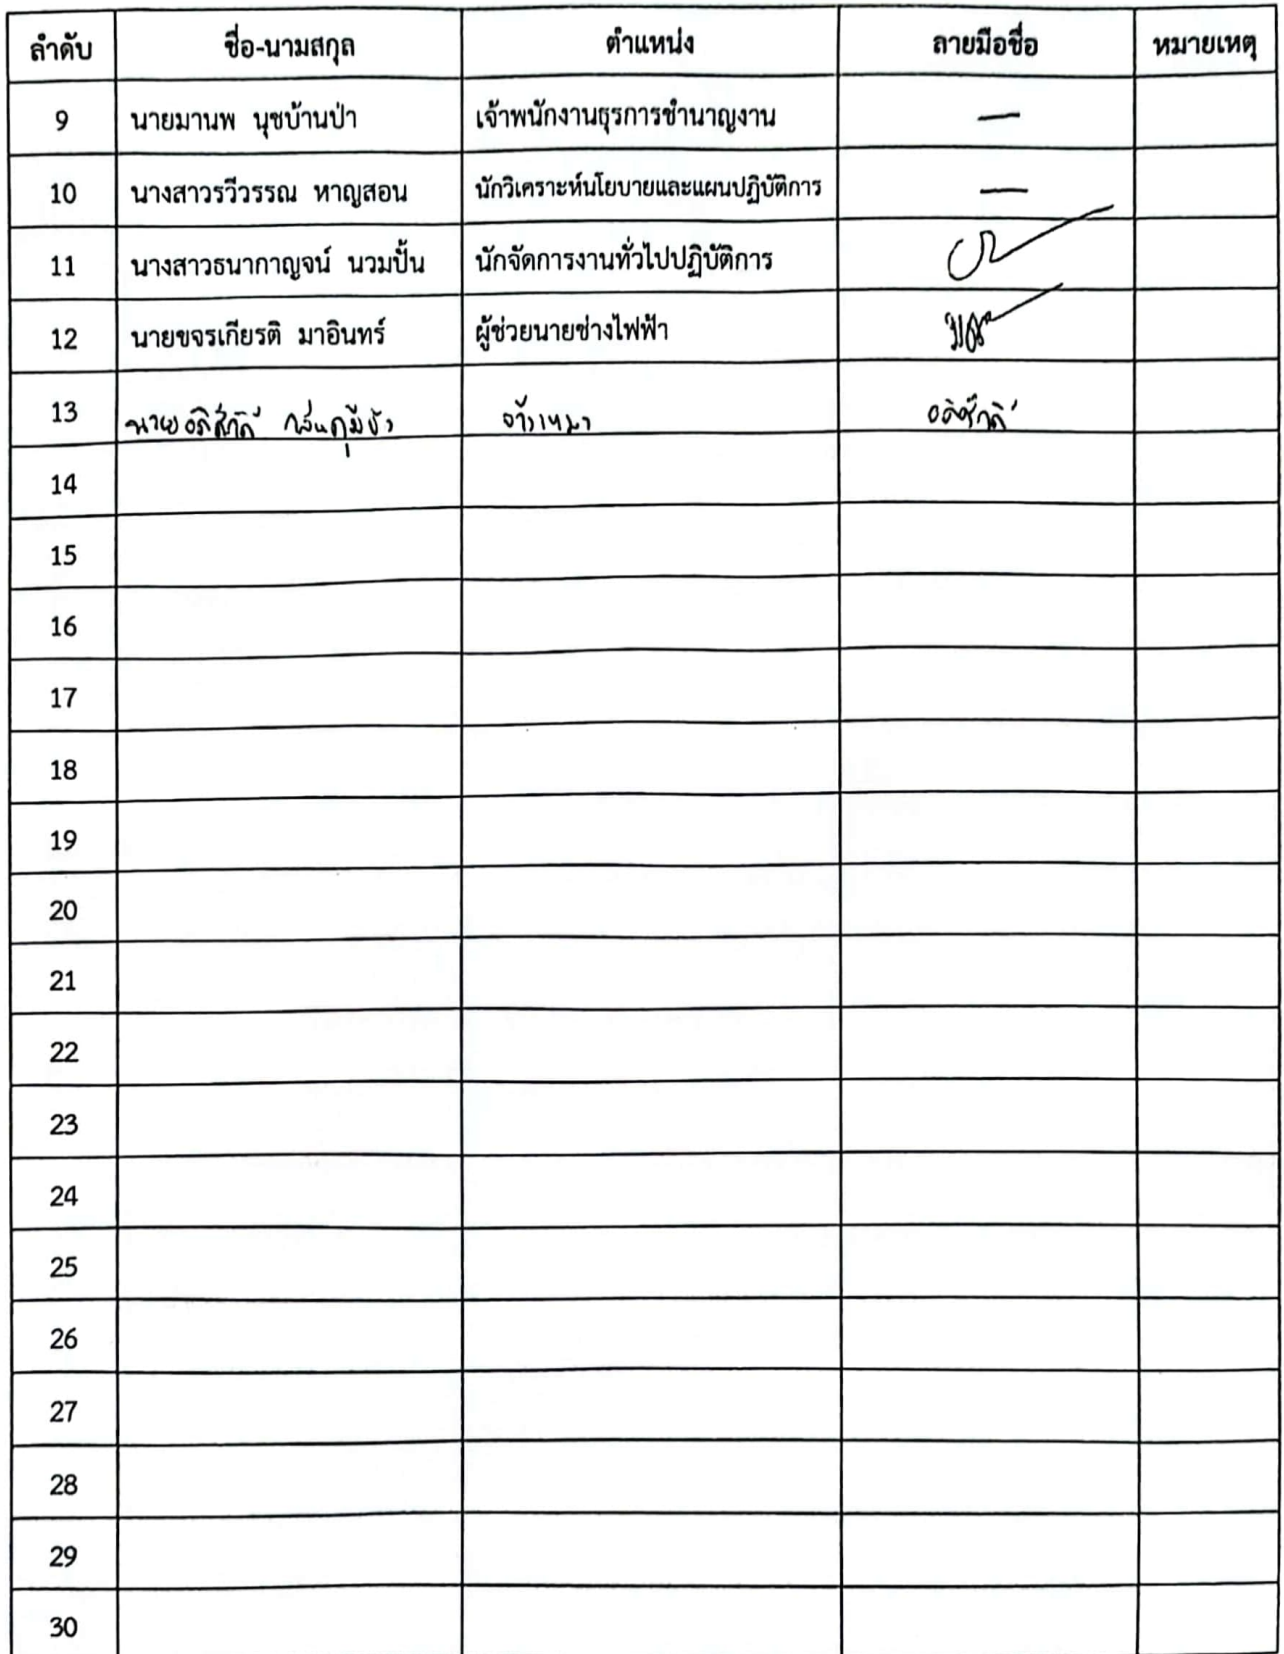 ลำดับ ชื่อ-นามสกุล ตำแหน่ง ลายมือชื่อ หมายเหตุ
9 นายมานพ นุชบ้านป่า เจ้าพนักงานธุรการชำนาญงาน —
10 นางสาวรวีวรรณ หาญสอน นักวิเคราะห์นโยบายและแผนปฏิบัติการ —
11 นางสาวธนากาญจน์ นวมปั้น นักจัดการงานทั่วไปปฏิบัติการ
12 นายขจรเกียรติ มาอินทร์ ผู้ช่วยนายช่างไฟฟ้า
13 นาย จ้างเหมา
14
15
16
17
18
19
20
21
22
23
24
25
26
27
28
29
30